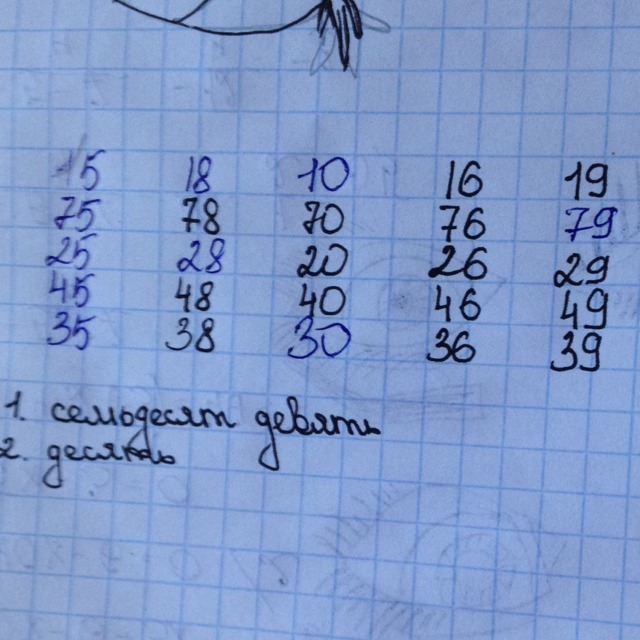 15 18 10 16 19
75 78 70 76 79
25 28 20 26 29
45 48 40 46 49
35 38 30 36 39
1. семодесят девять
2. десять